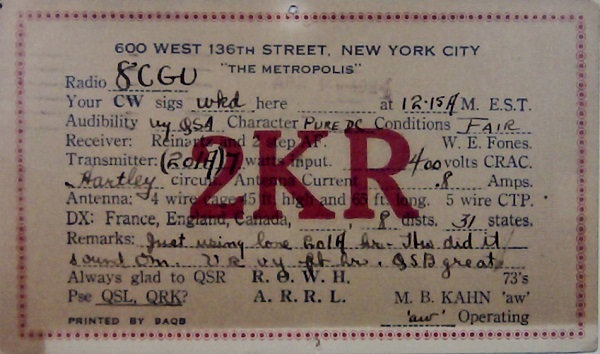 600 WEST 136TH STREET, NEW YORK CITY
"THE METROPOLIS"
Radio 8CGU
Your CW sigs wkd here at 12·15A M. E.S.T.
Audibility vy QSA Character PURE DC Conditions FAIR
Receiver: Reinartz and 2 step AF. W. E. Fones.
Transmitter: (201A) 7 watts input. 400 volts CRAC.
Hartley circuit. Antenna Current .8 Amps.
Antenna: 4 wire cage 45 ft. high and 65 ft. long. 5 wire CTP.
2KR
DX: France, England, Canada, 8 dists. 31 states.
Remarks: Just using lone 201A hr. Hw did it
sound Om. U r vy hr. QSB great
Always glad to QSR R. O. W. H. 73's
Pse QSL, QRK? A. R. R. L. M. B. KAHN 'aw'
PRINTED BY 9AQB 'aw' Operating